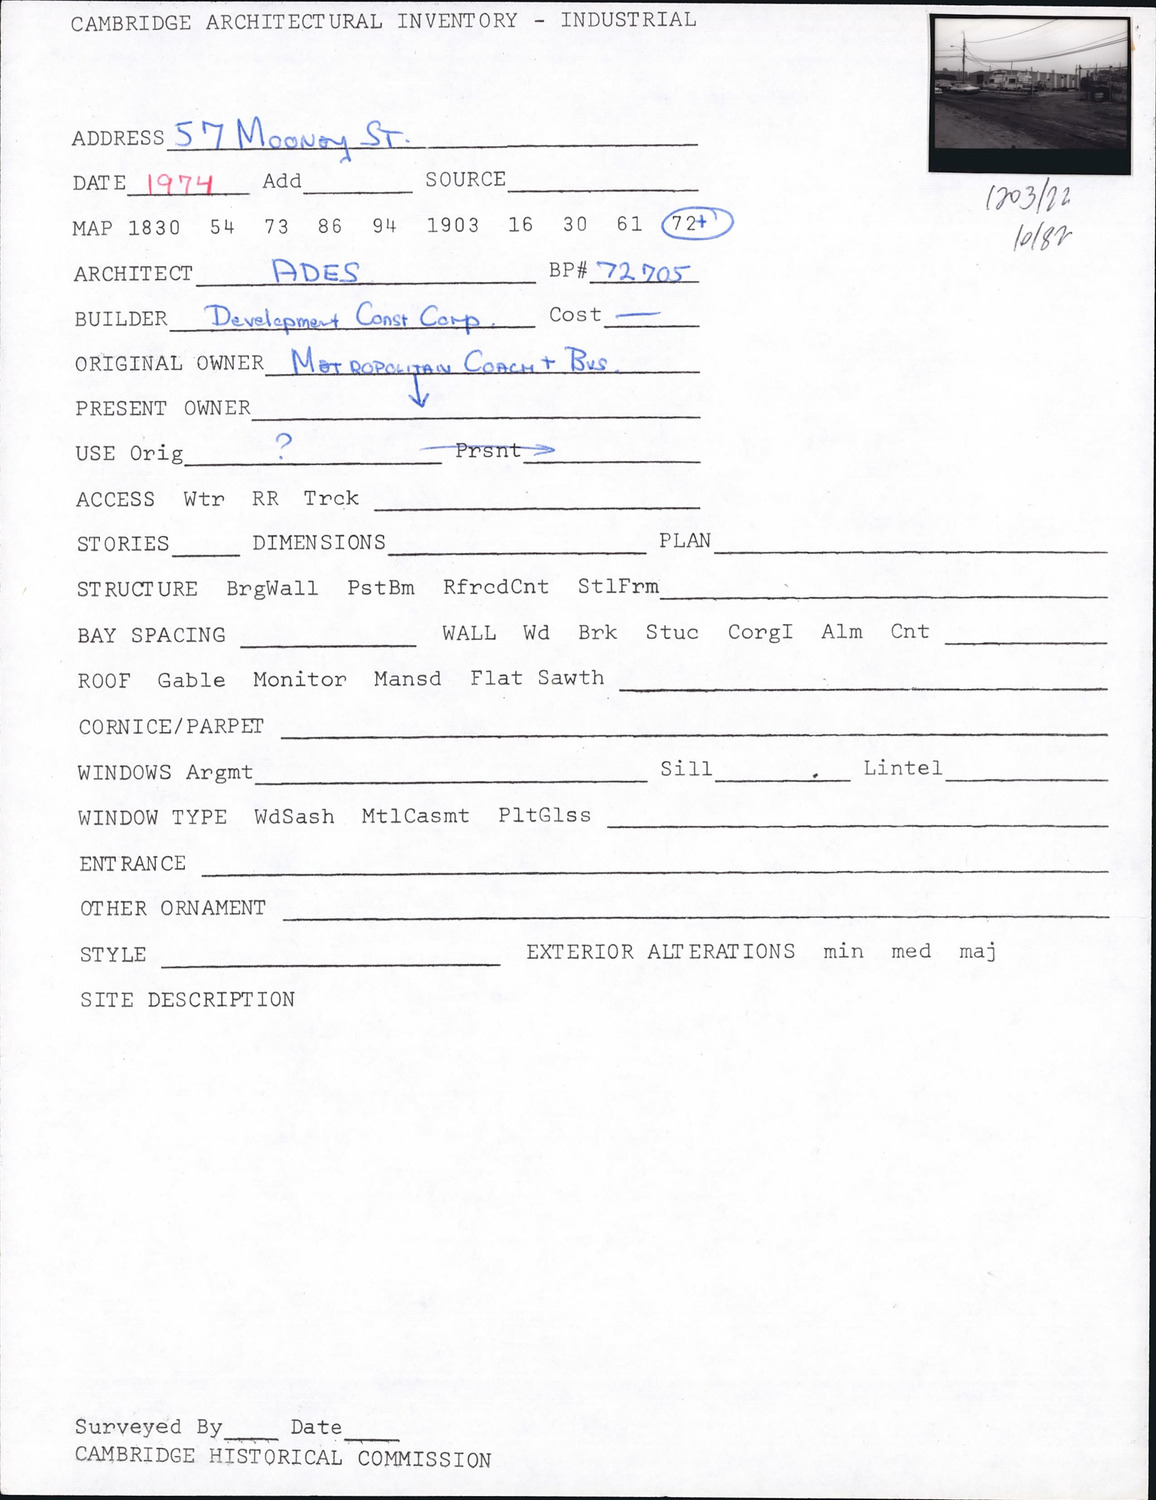 CAMBRIDGE ARCHITECTURAL INVENTORY - INDUSTRIAL
1203/22
10/82
ADDRESS 57 Mooney St.
DATE 1974 Add SOURCE
MAP 1830 54 73 86 94 1903 16 30 61 72+
ARCHITECT ADES BP# 72705
BUILDER Development Const Corp. Cost —
ORIGINAL OWNER METROPOLITAN COACH + BUS
PRESENT OWNER ↓
USE Orig ? Prsnt →
ACCESS Wtr RR Trck
STORIES DIMENSIONS PLAN
STRUCTURE BrgWall PstBm RfrcdCnt StlFrm
BAY SPACING WALL Wd Brk Stuc CorgI Alm Cnt
ROOF Gable Monitor Mansd Flat Sawth
CORNICE/PARPET
WINDOWS Argmt Sill Lintel
WINDOW TYPE WdSash MtlCasmt PltGlss
ENTRANCE
OTHER ORNAMENT
STYLE EXTERIOR ALTERATIONS min med maj
SITE DESCRIPTION
Surveyed By Date
CAMBRIDGE HISTORICAL COMMISSION